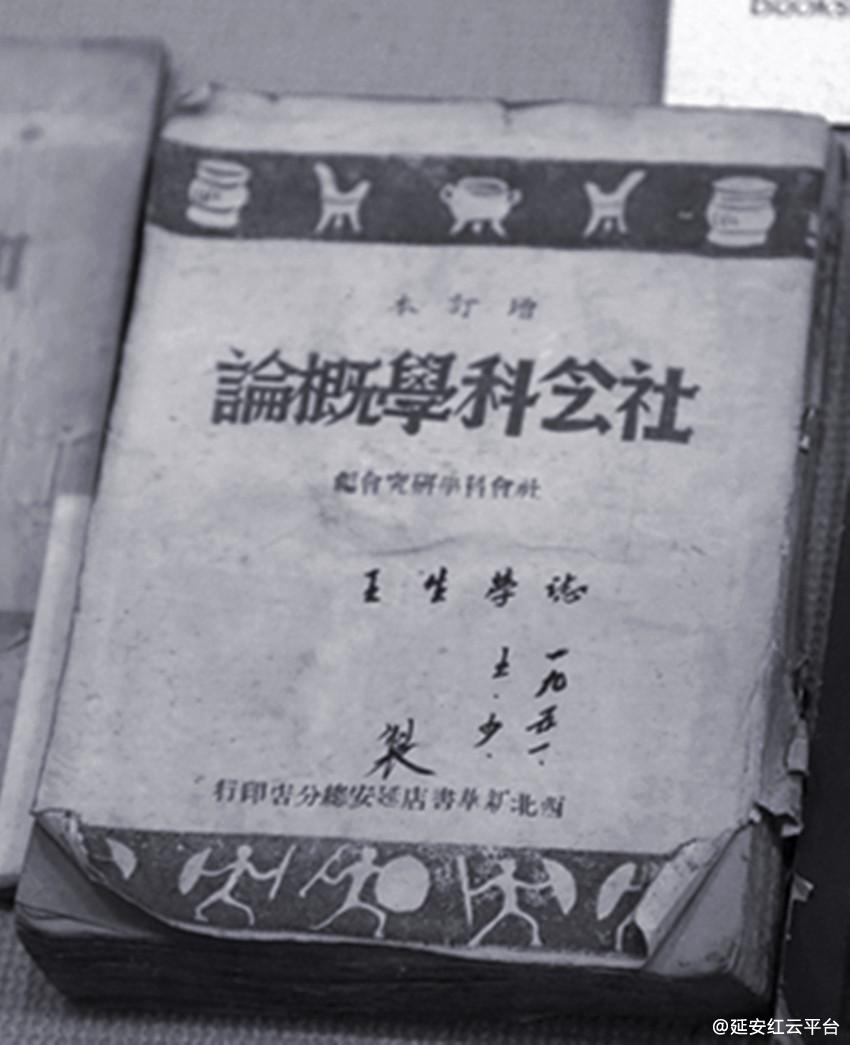 Books
增訂本
社会科學概論
社會科學研究會編
誌學生王
一九五一.
製
西北新華書店延安總分店印行
@延安红云平台